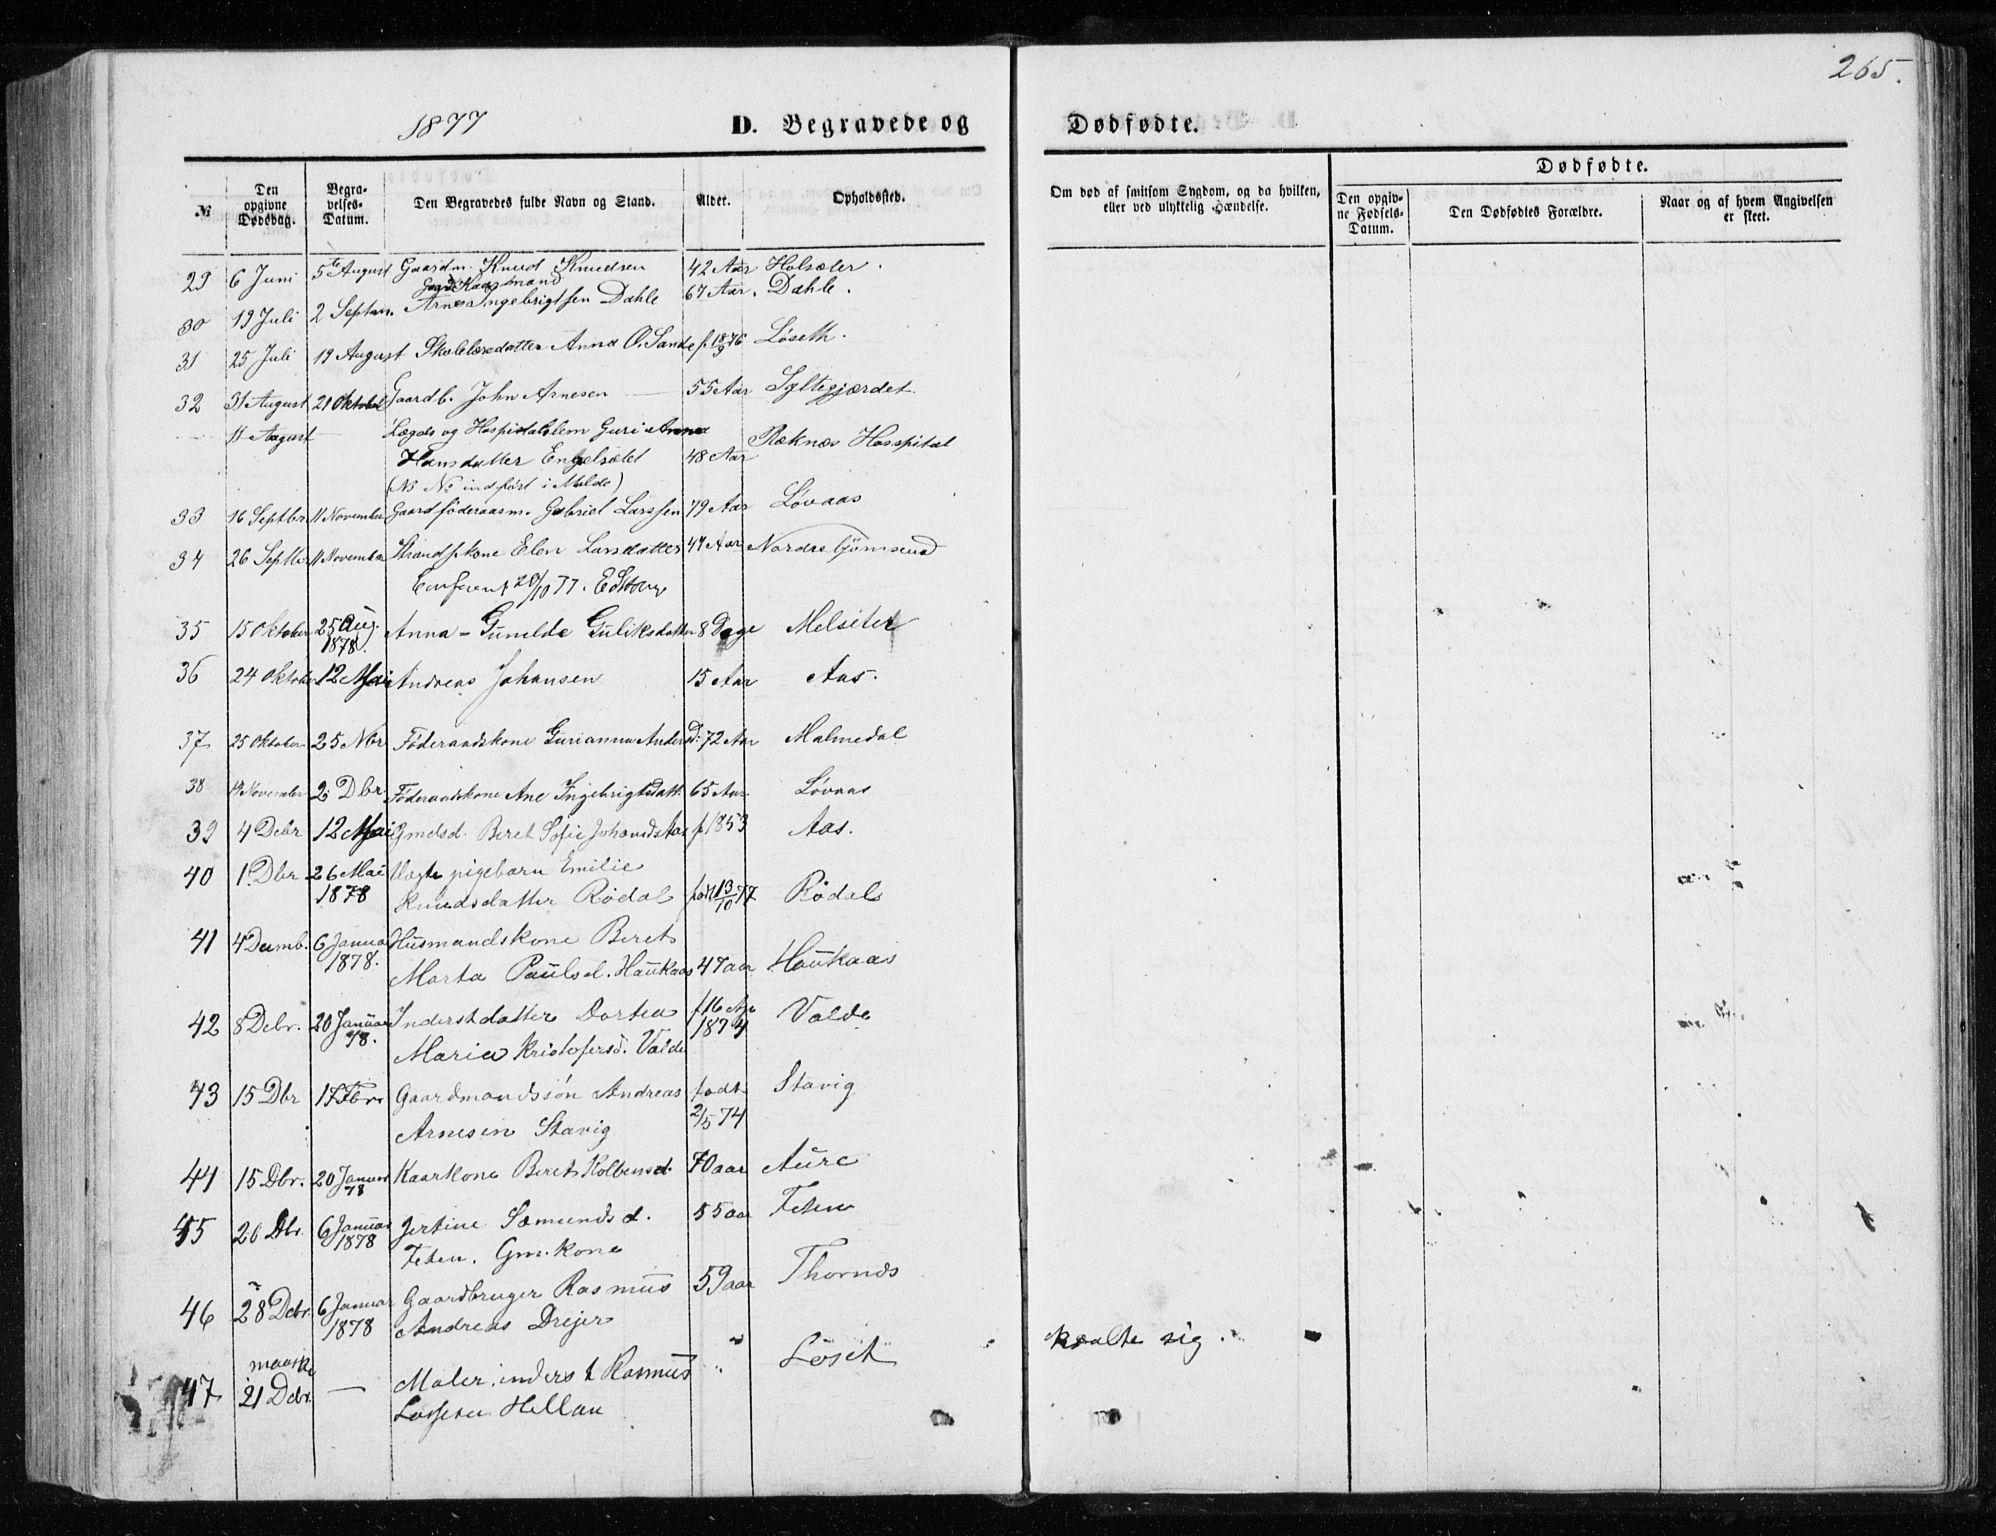 265.
1877
D. Begravede og
Dødfødte.
№
Den opgivne Dødsdag.
Begravelses-Datum.
Den Begravedes fulde Navn og Stand.
Alder.
Opholdssted.
Om død af smitsom Sygdom, og da hvilken, eller ved ulykkelig Hændelse.
Dødfødte.
Den opgivne Fødsels-Datum.
Den Dødfødtes Forældre.
Naar og af hvem Angivelsen er skeet.
29 6 Juni 5te August Gaardm. Knud Knudsen 42 Aar Holsæter.
30 19 Juli 2 Septem. Arne Ingebrigtsen Dahle 67 Aar. Dahle.
31 25 Juli 19 August Skolelæredatter Anna O. Sande f. 18/9 76 Løseth.
32 31 August 21 Oktober Gaardb. John Arnesen 55 Aar Syltegjærdet
— 11 August — Lægds og Hospitalslem Guri Anna
Hansdatter Engelsætet 48 Aar Reknæs Hosspital
(NB No indført i Molde)
33 16 Septbr 11 November Gaardføderaasm. Gabriel Larssen 79 Aar Løvaas
34 26 Septbr 11 November Strandskone Elen Larsdatter 47 Aar Nordre Gjømsend
Conferert 20/10 77.
35 15 Oktober 25 Aug. 1878. Anna-Gunelde Guliksdatter 8 Dage Melseter
36 24 Oktober 12 Mai Andreas Johansen 15 Aar Aas.
37 25 Oktober 25 Nbr Føderaadskone Gurianna Andersd: 72 Aar Malmedal
38 19 November 2 Dbr Føderaadskone Ane Ingebrigtsdatt. 65 Aar Løvaas
39 4 Debr 12 Mai Gmdsd. Beret Sofie Johansd Aas f 1853 Aas.
40 1 Dbr 26 Mai Uægte pigebarn Emilie
1878 Knudsdatter Rødal født 13/10 77 Rødals
41 4 Decmb. 6 Januar Husmandskone Beret
1878. Marta Paulsd. Haukaas 47 aar Haukaas
42 8 Debr. 20 Januar Inderstdatter Dortea f 16 1874 Valde
78. Maria Kristofersd. Valde
43 15 Dbr 17 Febr. Gaardmandssøn Andreas født Stavig
Arnesen Stavig 2/5 74
44 15 Dbr. 20 Januar 78 Kaarkone Beret Kolbensd. 70 aar Aure
45 20 Dbr. 6 Januar Jertine Sæmundsd. 55 aar Feten
1878 Feten. Gm. kone
46 28 Debr. 6 Januar Gaardbruger Rasmus 59 aar Thornes
1878 Andreas Drejer
47 maaske 21 Debr. — Maler, inderst Rasmus " Løset kvalte sig.
Larssen Hellan